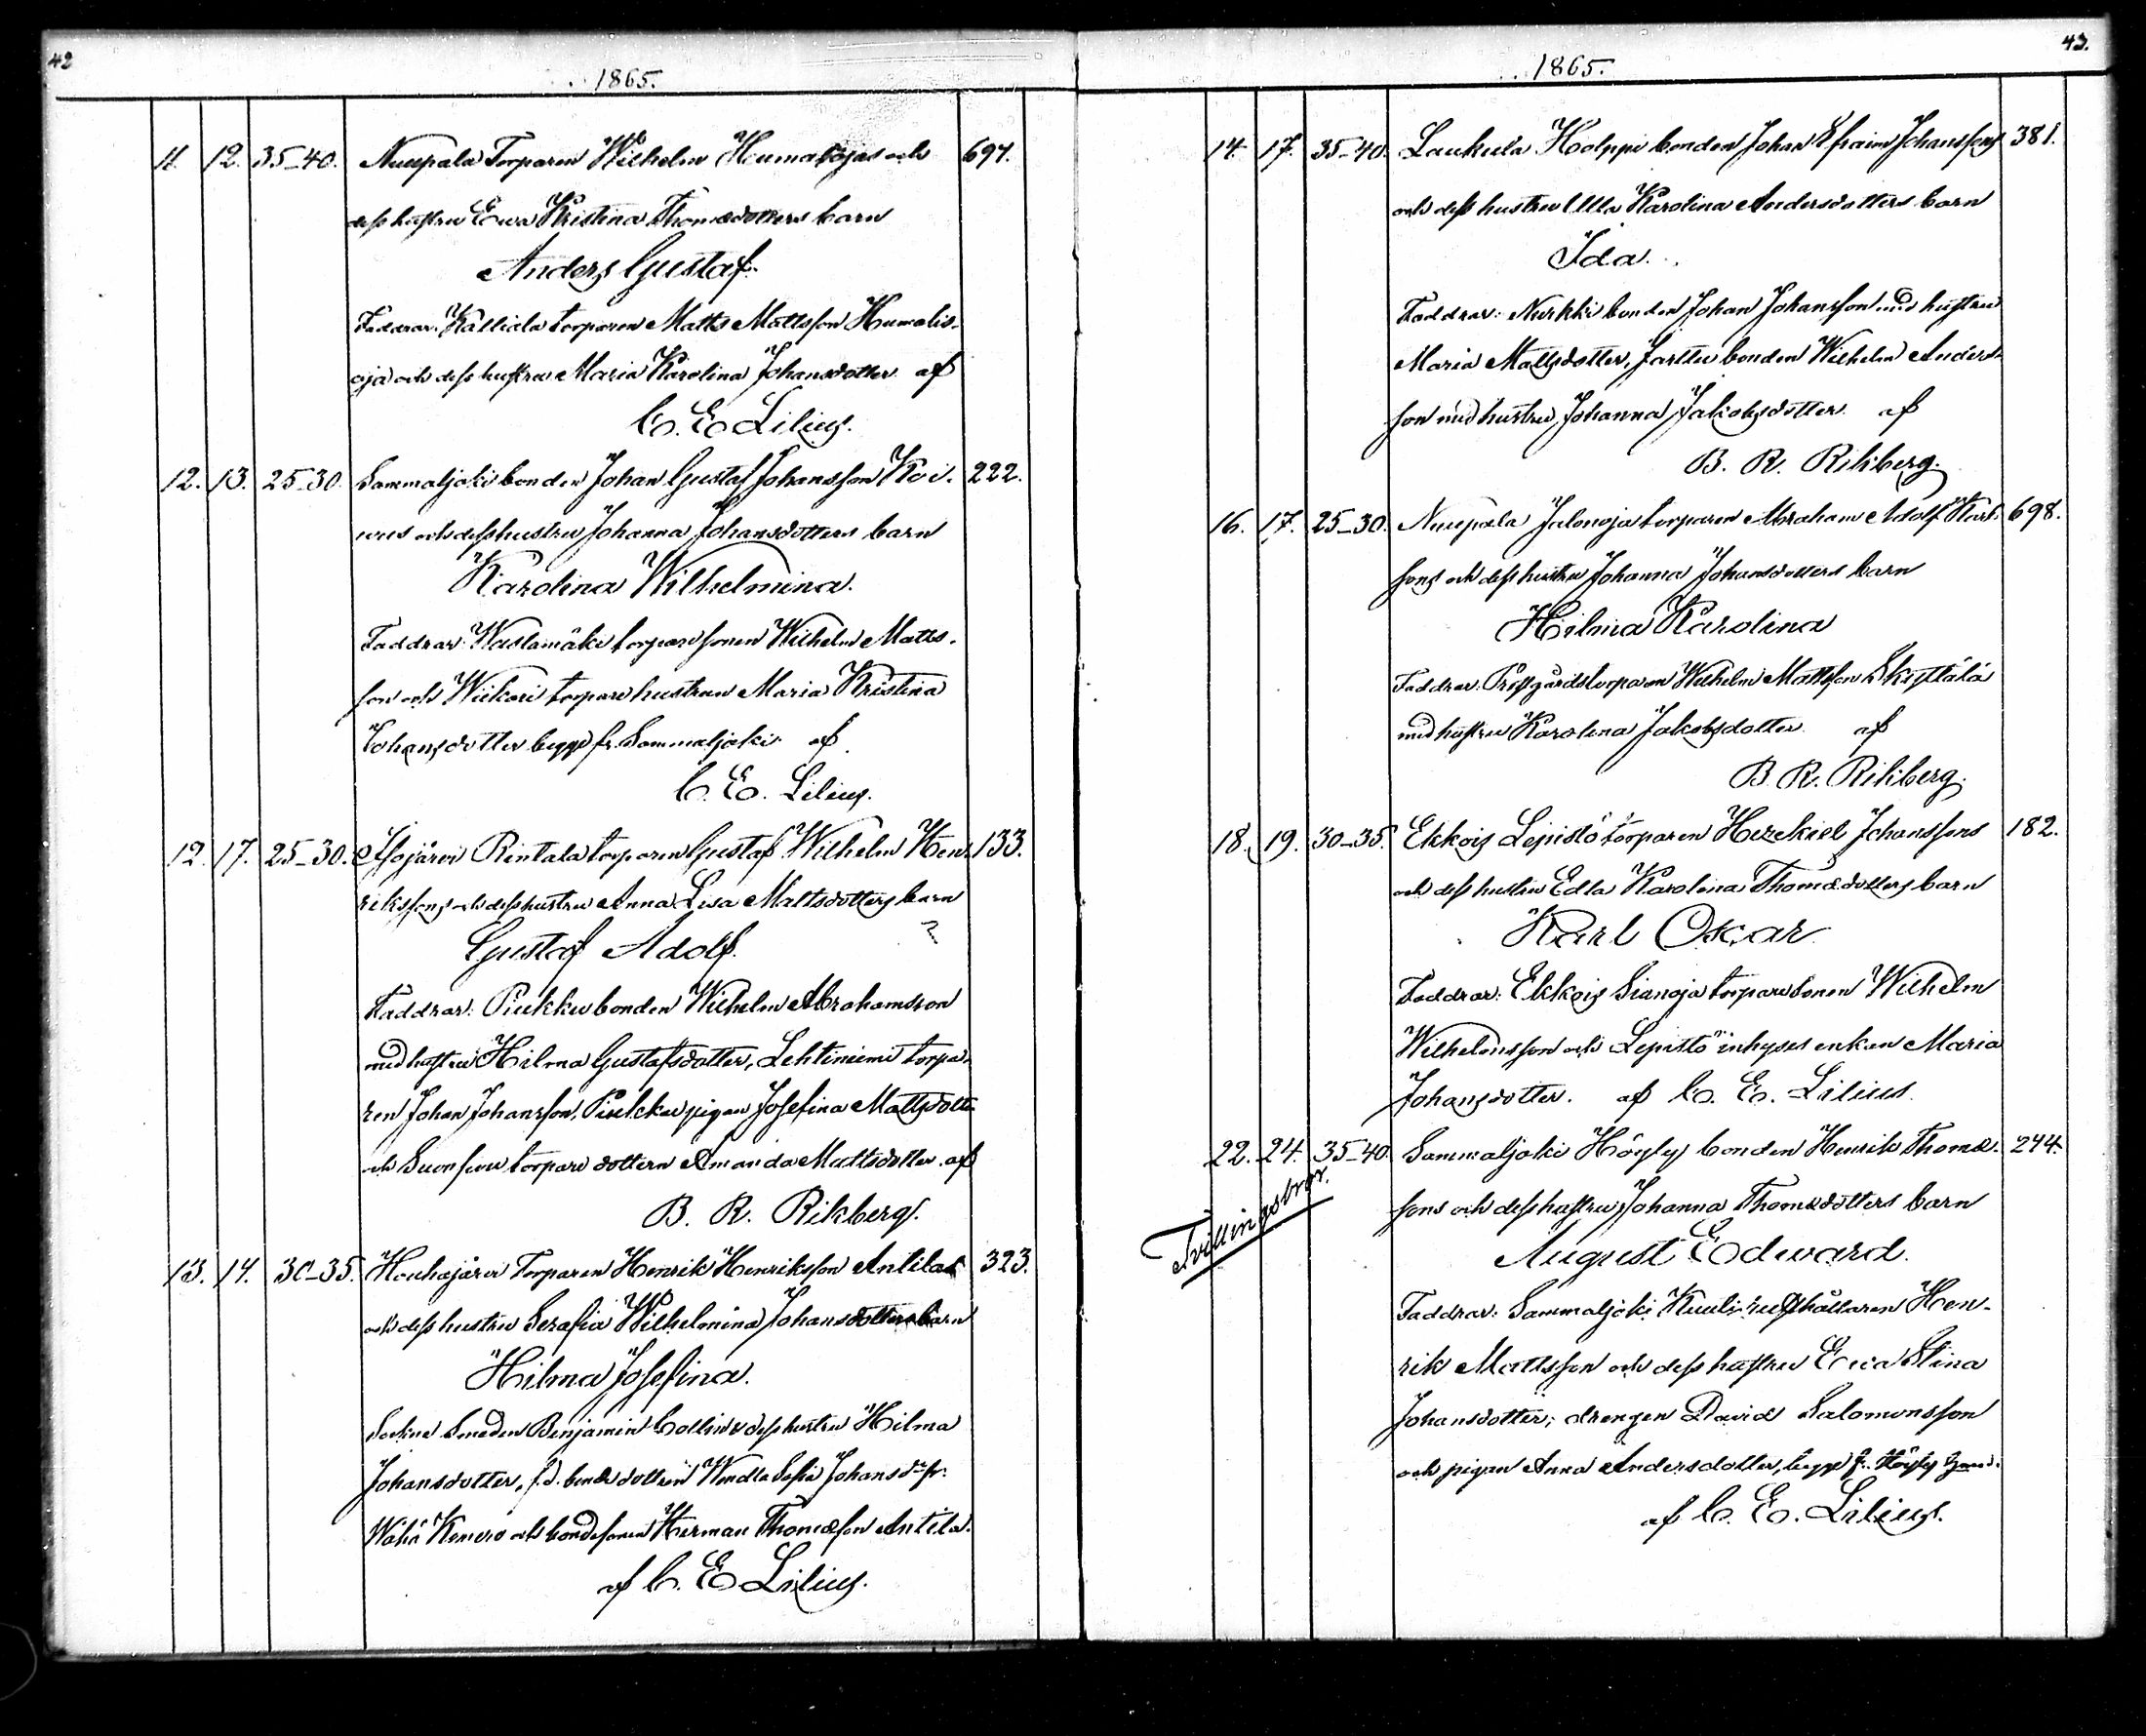 42
1865.
11. 12. 35–40. Nuupala Torparen Wilhelm Humalojas och 697.
dess hustru Ewa Kristina Thomædotters barn
Anders Gustaf.
Faddrar: Källiala torparen Matts Mattsson Humalis-
oja och dess hustru Maria Karolina Johansdotter af
C. E. Lilius.
12. 13. 25–30. Sammaljoki bonden Johan Gustaf Johansson Koi- 222.
och dess hustru Johanna Johansdotters barn
Karolina Wilhelmina.
Faddrar: torparesonen Wilhelm Matts-
son och Wiikari torparehustrun Maria Kristina
Johansdotter begge fr. Sammaljoki af
C. E. Lilius.
12. 17. 25–30. Isojärvi Rintala torparen Gustaf Wilhelm Hen- 133.
rikssons och dess hustru Anna Lisa Mattsdotters barn
Gustaf Adolf.
Faddrar: Piukku bonden Wilhelm Abrahamsson
med hustru Hilma Gustafsdotter, Lehtiniemi torpa-
ren Johan Johansson, Piukku pigan Josefina Mattsdotter
och torpare dottern Amanda Mattsdotter. af
B. R. Rikberg.
13. 14. 30–35. Houhajärvi Torparen Henrik Henriksson Antilas 323.
och dess hustru Serafia Wilhelmina Johansdotters barn
Hilma Josefina.
Sockne Smeden Benjamin Collin & dess hustru Hilma
Johansdotter, f.d. bonde dottren Wendla Sofia Johansdr fr.
Wähä Kenero och bondesonen Herman Thomæson Antila.
af C. E. Lilius.
43.
1865.
14. 17. 35–40. Laukula Holppi bonden Johan Efraim Johanssons 381.
och dess hustru Ulla Karolina Andersdotters barn
Ida.
Faddrar: Nurkki bonden Johan Johansson med hustru
Maria Mattsdotter, Jarttu bonden Wilhelm Anders-
son med hustru Johanna Jakobsdotter. af
B. R. Rikberg.
16. 17. 25–30. Nuupala Jalonoja torparen Abraham Adolf Karls- 698.
sons och dess hustru Johanna Johansdotters barn
Hilma Karolina
Faddrar: Prestgårdstorparen Wilhelm Mattsson Skyttälä
med hustru Karolina Jakobsdotter af
B. R. Rikberg.
18. 19. 30–35. Ekkois Lepistö torparen Hezekiel Johanssons 182.
och dess hustru Edla Karolina Thomædotters barn
Karl Oskar
Faddrar: Ekkois Sianoja torparesonen Wilhelm
Wilhelmsson och Lepistö inhyses enkan Maria
Johansdotter. af C. E. Lilius.
22. 24. 35–40. Sammaljoki Höyly bonden Henrik Thomæ- 244.
Tvillingsbror.
sons och dess hustru Johanna Thomædotters barn
August Edward.
Faddrar: Sammaljoki Kuuli rusthållaren Hen-
rik Mattsson och dess hustru Ewa Stina
Johansdotter; drengen David Salomonsson
och pigan Anna Andersdotter, begge fr. Höyly
af C. E. Lilius.